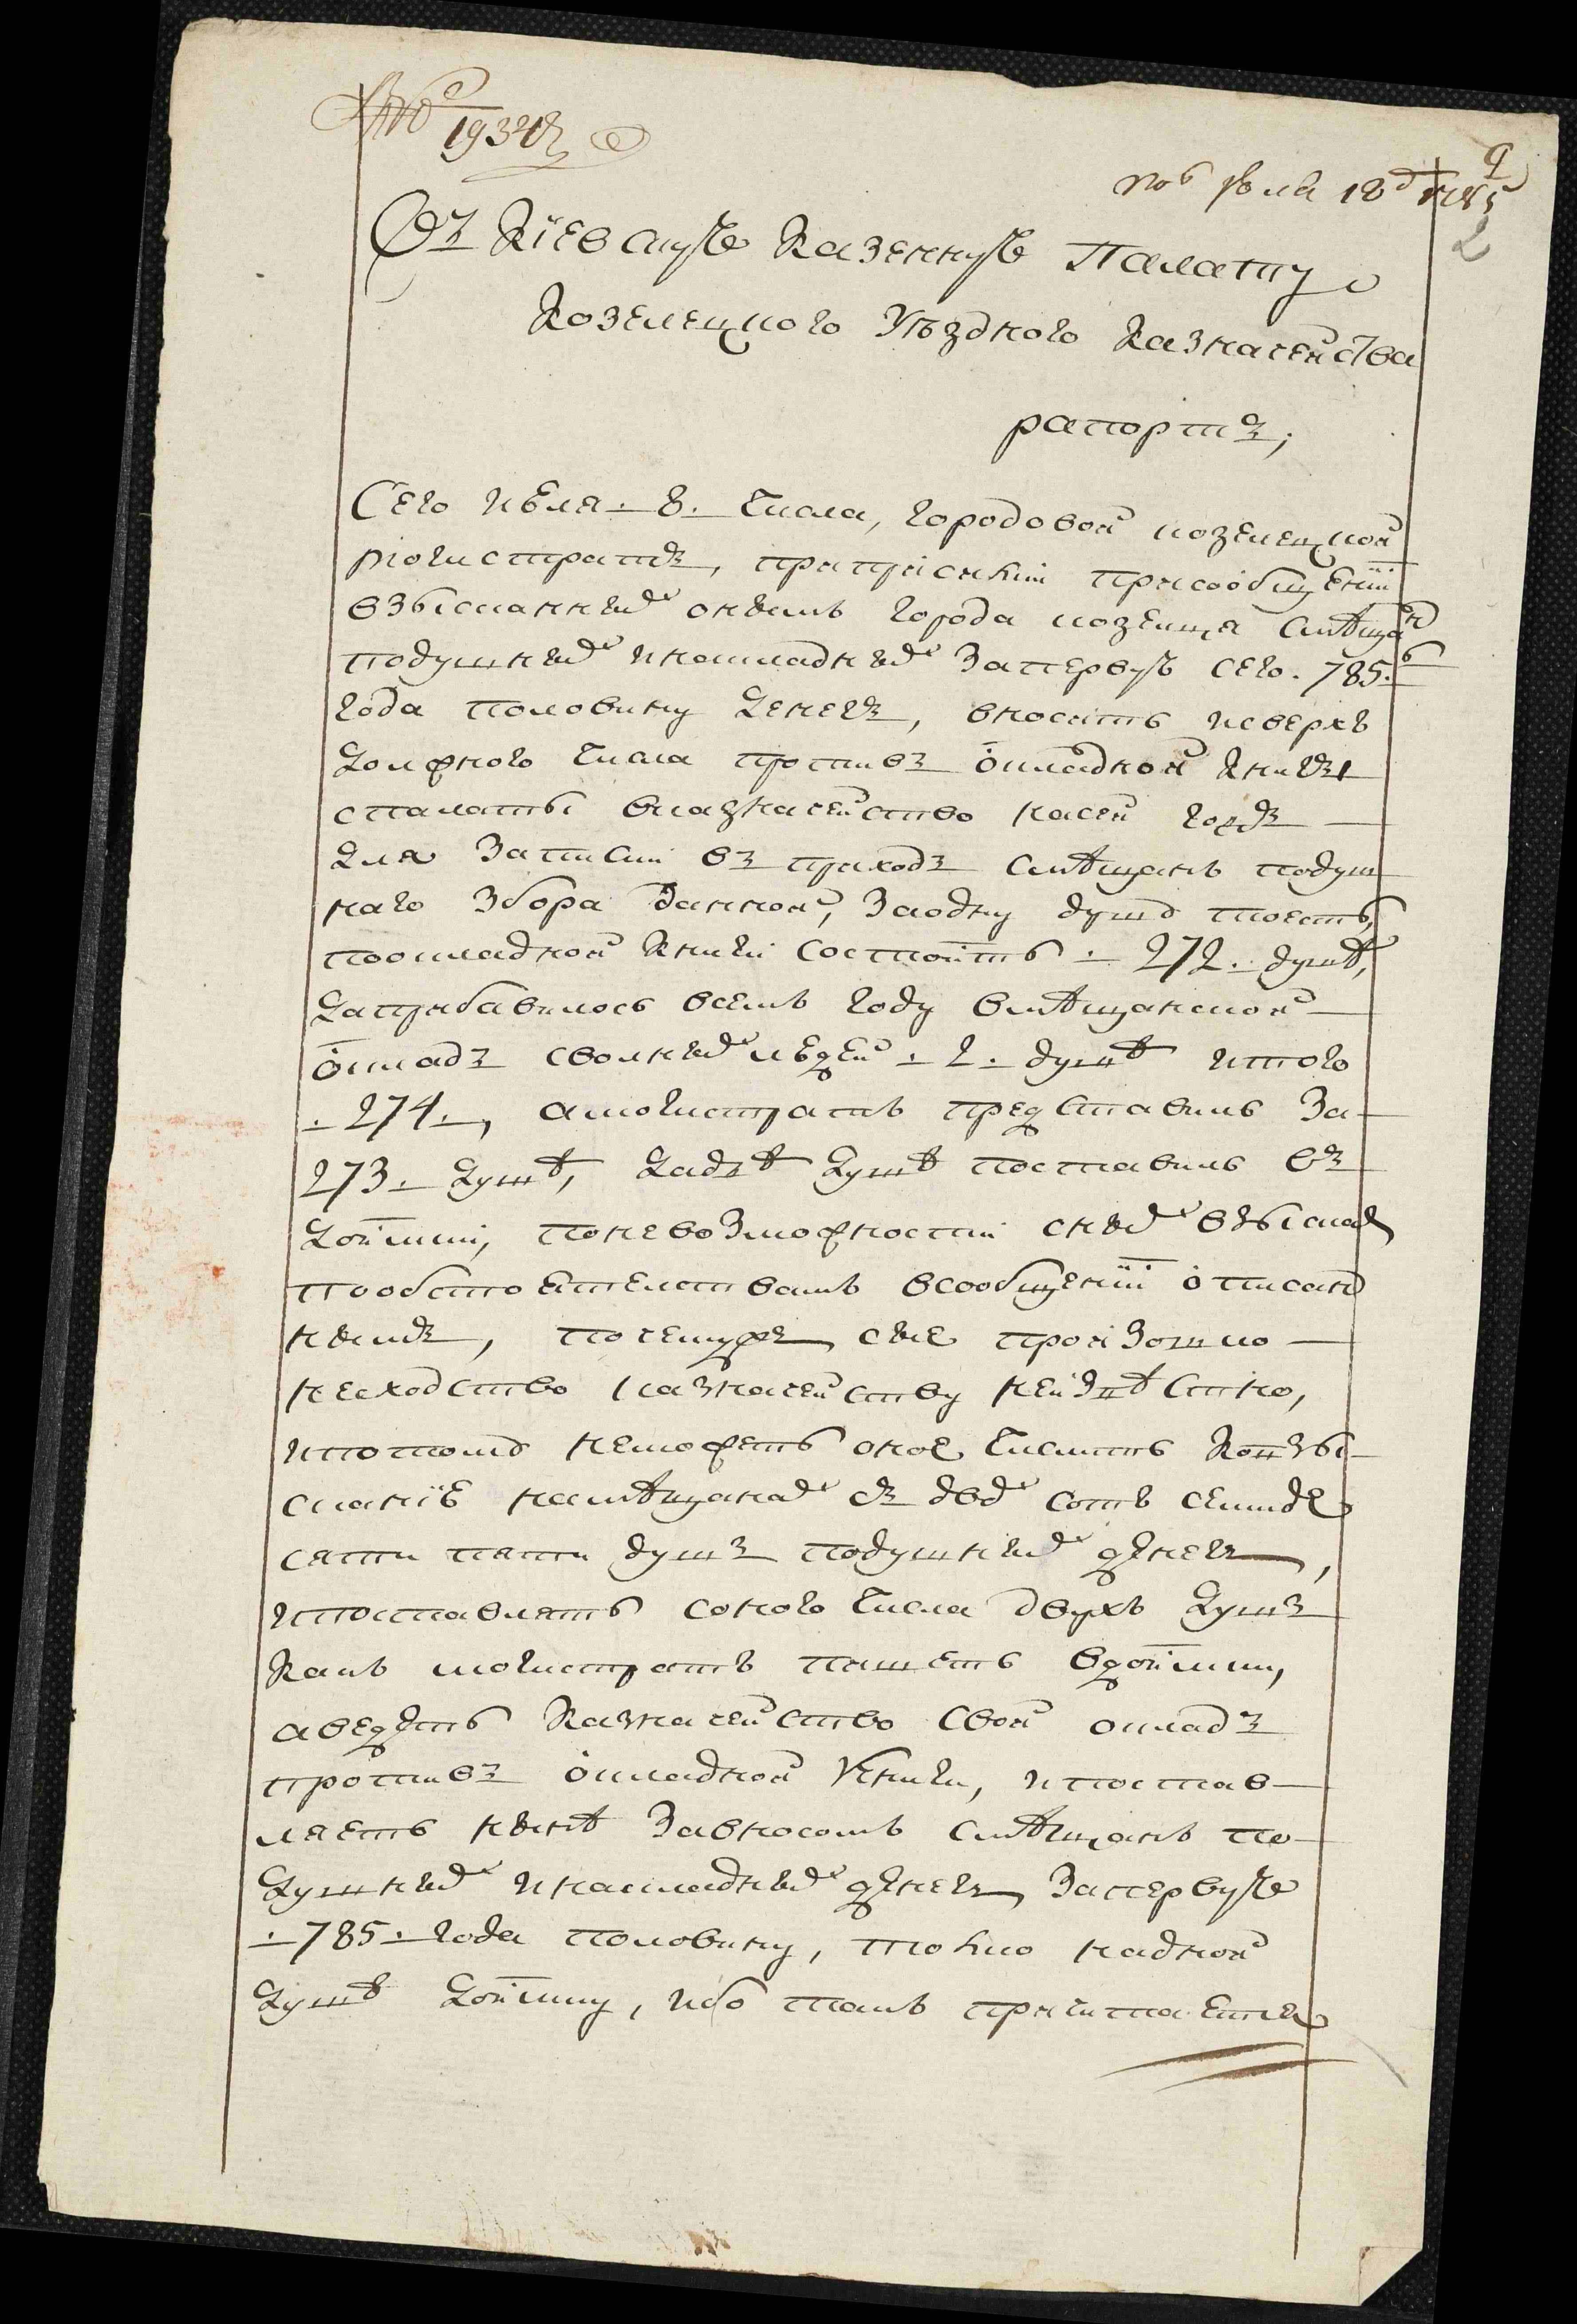 № 1932
по6 июля 18д 1785
9
2
Въ Кіевскую Казенную Палату
Козелецкого Уѣздного Казначейства
рапортъ,
Сего июля 8. числа, городовой козелецкой
могистратъ, приписании присообщении
взысканных оным города козелця смѣщан
подушных инакладных заперву сего. 785.
года половину денегъ, вносить исверхъ
должного числа противъ окладной книги
спалаты вказначейство насей годъ
для записки въ приход смѣщанъ подуш
наго збора данной, заодну душу тоесть,
поокладной книги состоитъ 272. душѣ,
даприбавилось всемъ году вмѣщанской
окладъ сволных людей 2. душѣ итого
274., амогистратъ представилъ за
273. душѣ, даднѣ душѣ поставилъ въ
доимки, поневозможности сных взыскат
пообстоятелствамъ всообщении описан
нымъ, почемужъ сие произошло
несходство казначейству неизвѣстно,
ипотому неможетъ оное числить ко взы
сканіе намѣщанах съ двох сотъ семиде
сяти пяти душъ подушных денегъ,
ипоставлять соного числа двухъ душъ
какъ могистратъ пишетъ вдоимки,
аведетъ казначейство свой окладъ
противъ окладной книги, ипостав
ляетъ нынѣ завносомъ смѣщанъ по
душных инакладных денегъ запервую
785. года половину, толко надной
душѣ доимку, ибо такъ причитается